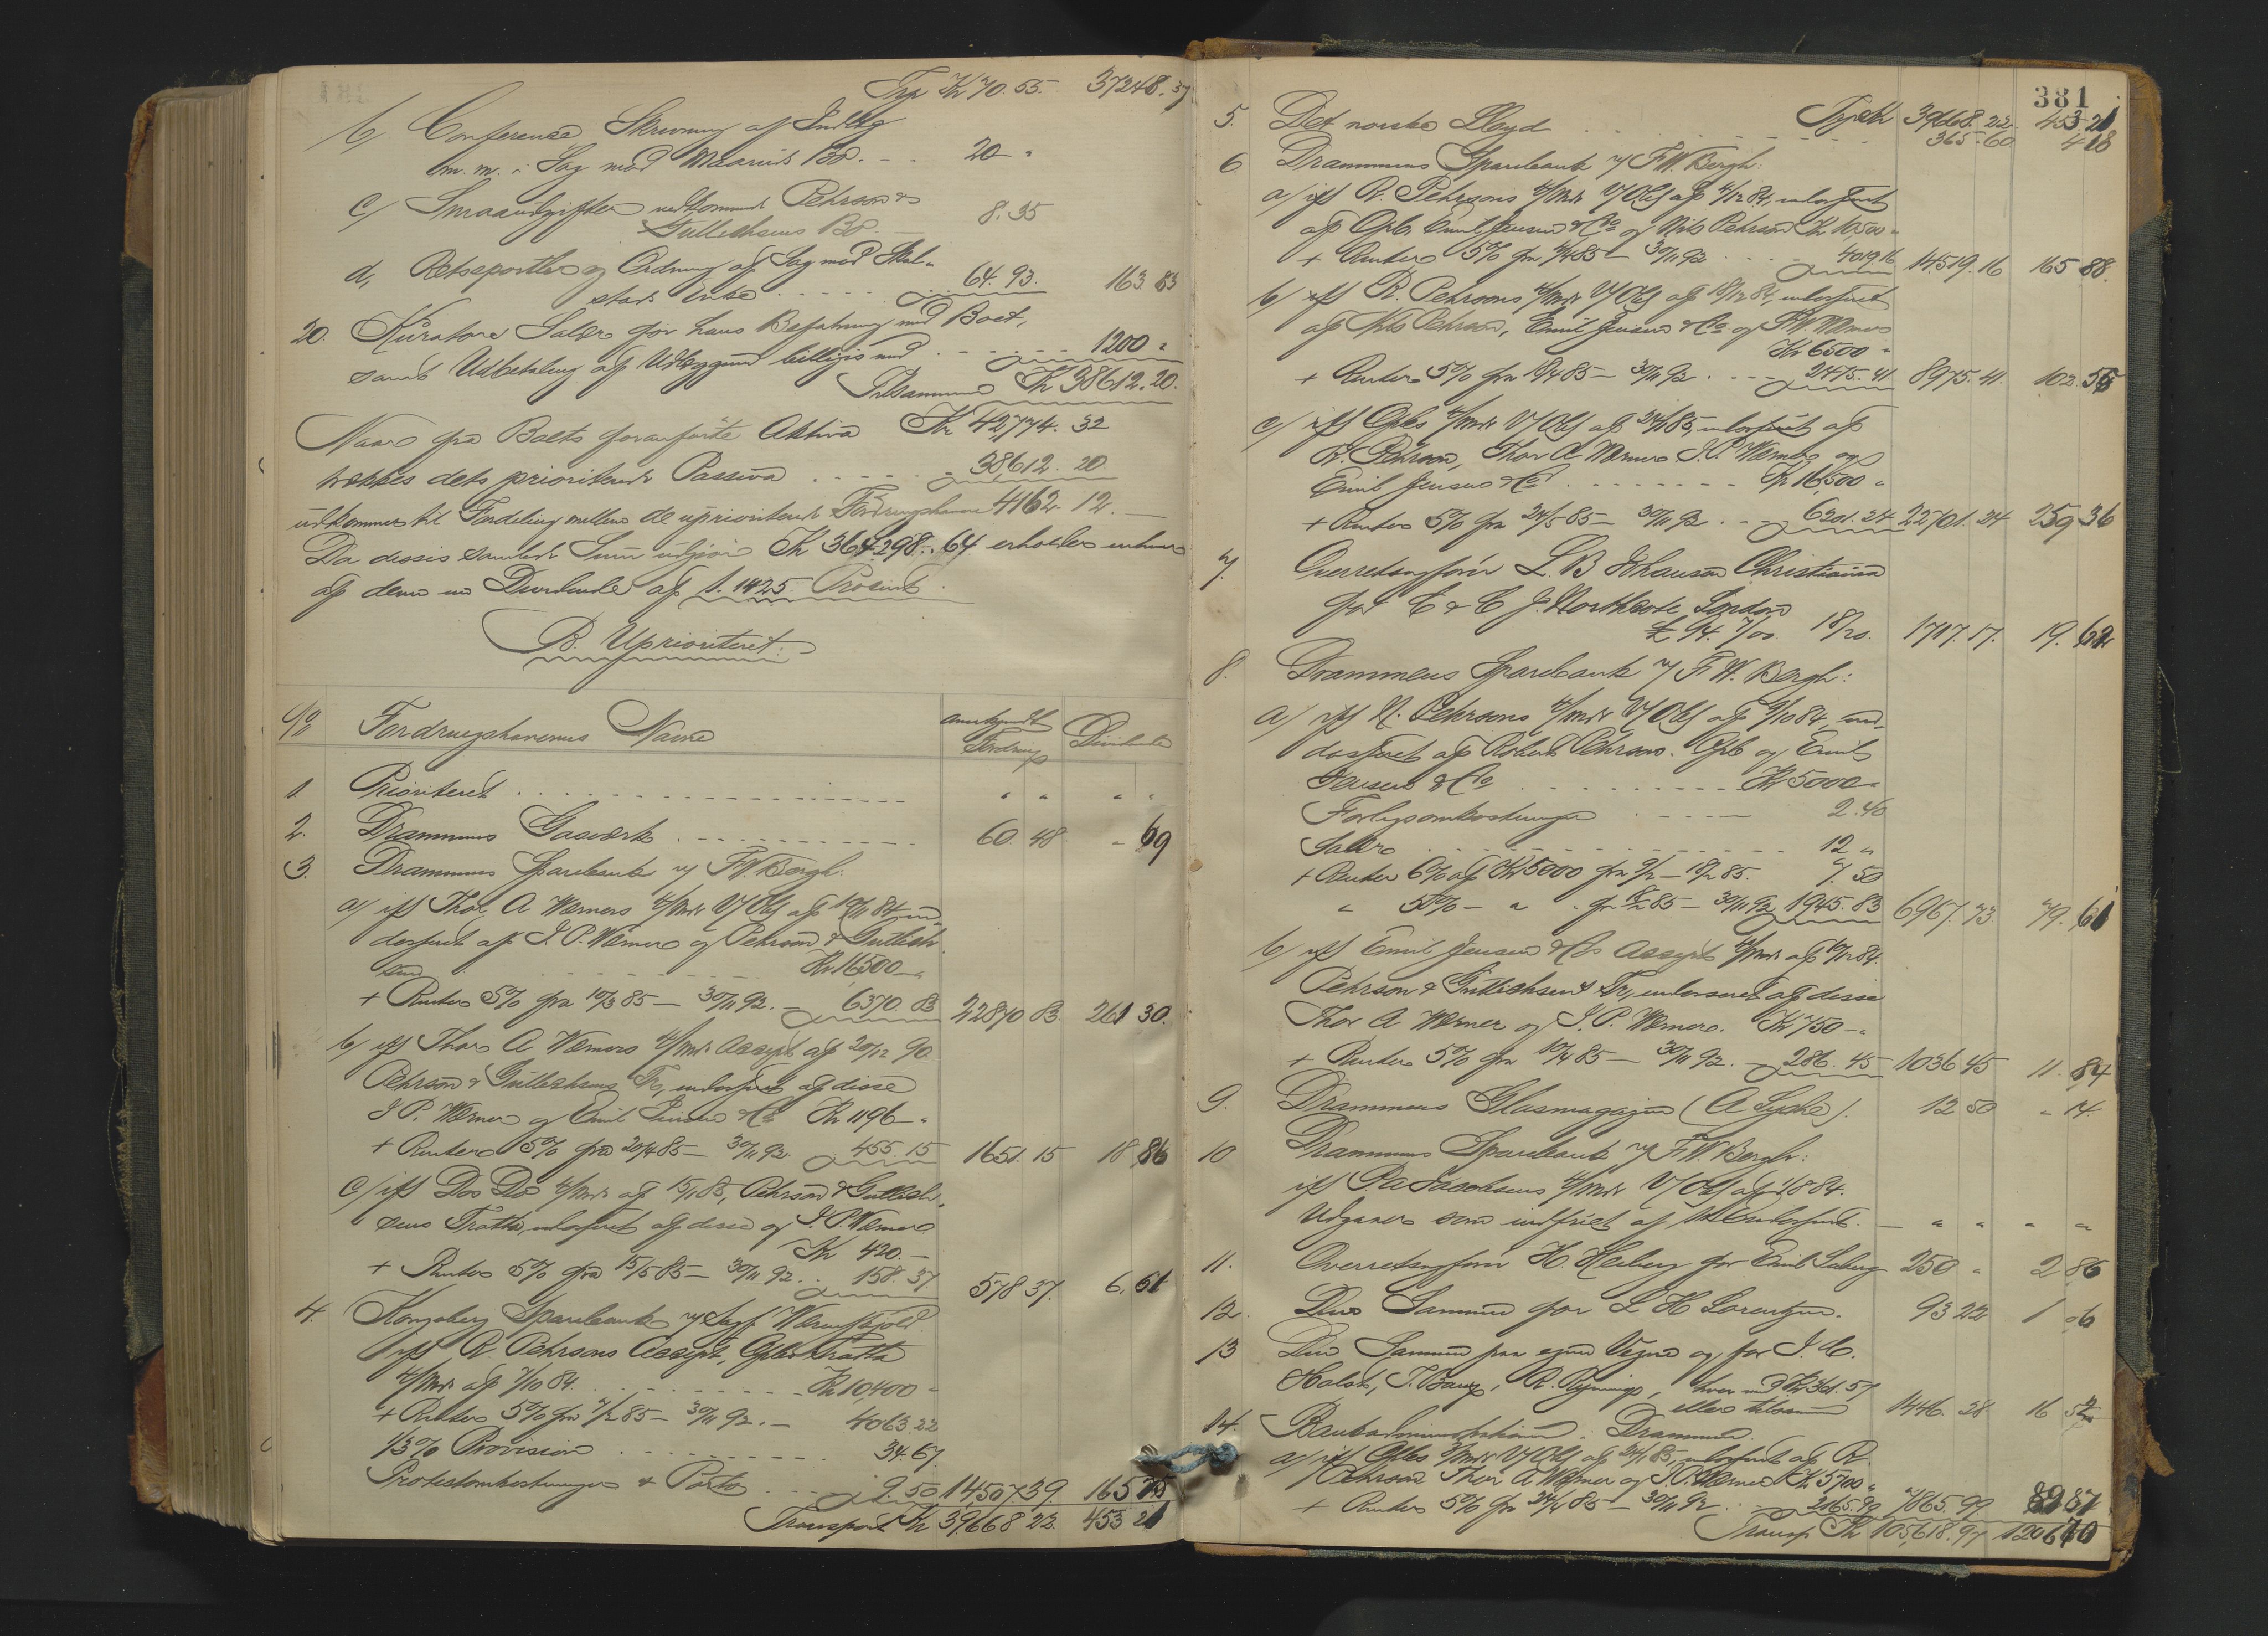 Trp Kr 70.55. 37248.37
b/ Conference Skrivning af Indlæg
m.m. i Sag mod Bo. 20 "
c/ Smaaudgifter vedkommende Pehrson &
Gulliksens Bo. 8.35
d, Retsgebyr og Ordning af Sag mod
stads Enke 64.93. 163.83
20. Kurators Salær for hans Befatning med Boet,
samt Udbetaling af Udlæggene billiges med 1200 "
Tilsammen Kr 38612.20.
Naar fra Boets foranførte Aktiva Kr 42,774.32
trækkes dets prioriterede Passiva " 38612.20.
udkommer til Fordeling mellem de uprioriterede Fordringshavere 4162.12.
Da disses samlede Sum udgjør Kr 364,298.64 erholder enhver
af dem en Dividende af 1.1425 Procent.
B. Uprioriteret.
No Fordringshavernes Navne Anerkjendt Fordring Dividende
1. Prioriteret " " " "
2. Drammens Gasværk 60.48 " 69
3. Drammens Sparebank v/ F.W. Bergh.
a/ iff Thor A Werners 4/mdr V/Obl af 10/11 84, en-
dosseret af J.P. Werner og Pehrson & Gullich-
sen Kr 16,500 "
+ Renter 5% fra 10/3 85 – 30/11 92. – 6370.83 22870 83. 261 30.
b/ iff Thor A Werners 4/mdr Accept af 20/12 90
Pehrson & Gullichsens Tr, endosseret af disse
J.P. Werner og Emil Jensen & Co Kr 1196 "
+ Renter 5% fra 20/4 85 – 30/11 92. 455.15 1651.15 18 86
c/ iff Do Do 4/mdr af 15/1 85, Pehrson & Gullich-
sens Tratte, endosseret af disse og J.P. Werner
Kr 420. –
+ Renter 5% fra 15/5 85 – 30/11 92. 158.37 578 37. 6.61
4. Kongsberg Sparebank v/ Sagf. Wærenskjold
iff R. Pehrsons Accept, Tratte
4/mdr af 7/10 84. Kr 10,400 "
+ Renter 5% fra 7/2 85 – 30/11 92. – 4063.22
1/3% Provision 34.67.
Protestomkostninger & Porto 9.50 14507.39. 165 75
Transport Kr 39668 22. 453 21
381
5. Det norske Lloyd Trp Kr 39668.22. 453.21
365.60 4 18
6. Drammens Sparebank v/ F.W. Bergh.
a/ iff R. Pehrsons 4/mdr V/Obl af 4/12 84, endosseret
af Emil Jensen & Co og Nils Pehrson Kr 10,500 "
+ Renter 5% fra 4/4 85 – 30/11 92 4019.16 14519.16 165 88.
b/ iff R. Pehrsons 4/mdr V/Obl af 18/12 84, endosseret
af Nils Pehrson, Emil Jensen & Co og J.P. Werner
Kr 6500 "
+ Renter 5% fra 18/4 85 – 30/11 92. 2475.41 8975.41. 102.55
c/ iff 4/mdr V/Obl af 24/1 85, endosseret af
R. Pehrson, Thor A Werner J.P. Werner og
Emil Jensen & Co Kr 16,500 "
+ Renter 5% fra 24/5 85 – 30/11 92. 6201.24 22701.24 259 36
7. Overretssagfører L.B. Johansen Christiania
for C & C J. Northcote London
£ 94. 7/00. 18/20. 1717.17. 19.62
8. Drammens Sparebank v/ F.W. Bergh:
a/ iff N. Pehrsons 4/mdr V/Obl af 9/10 84, en-
dosseret af Robert Pehrson. og Emil
Jensen & Co Kr 5000 "
Forligsomkostninger 2.40
Salær 12 "
+ Renter 6% af Kr 5000 fra 9/2 – 18/2 85. 7.50
" 5% – " fra 18/2 85 – 30/11 92 1945.83 6967.73 79.61
b/ iff Emil Jensen & Co Accept 4/mdr af 10/12 84.
Pehrson & Gullichsens Tr, endosseret af disse
Thor A Werner og J.P. Werner. Kr 750 – "
+ Renter 5% fra 10/4 85 – 30/11 92. – 286.45 1036 45 11.84
9. Drammens Glasmagazin (A Lyche). 12 50 " 14.
10. Drammens Sparebank v/ F.W. Bergh:
iff Jacobsens 4/mdr V/Obl af 84.
Udgaar som indfriet af – " " " "
11. Overretssagfører H. Heiberg for Emil 250 " 2 86
12. Den Samme for L H Lorentzen. 93 22 1 06
13 Den Samme paa egne Vegne og for J. C.
Holst, J. Bang, R. , hver med Kr 361.57
eller tilsammen 1446.28 16 52
14. Bankadministrationen i Drammen.
a/ iff 3/mdr V/Obl af 24/1 85, endosseret af R.
Pehrson Thor A Werner og J.P. Werner Kr 5700 "
+ Renter 5% fra 24/4 85 – 30/11 92 2165.99 7865.99 89 87
Transp Kr 105,618.97 1206 70